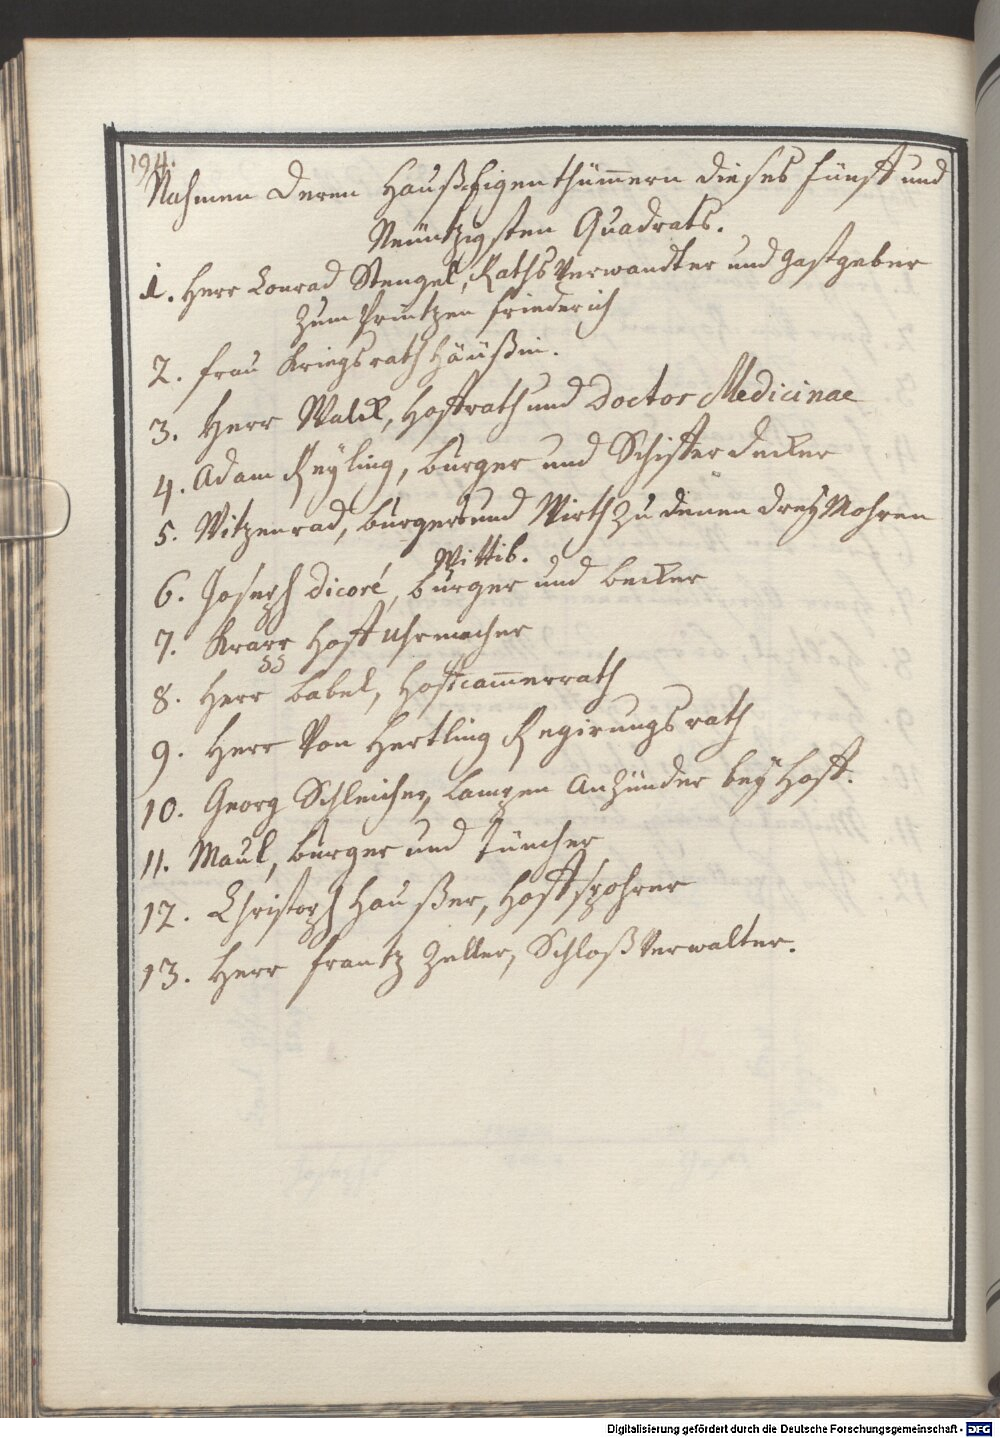 194.
Nahmen deren Hauß Eigenthümern dieses fünff und
Neüntzigsten Quadrats.
1. Herr Conrad Stengel, Raths Verwandter und Gastgeber
zum Printzen Friederich
2. Frau Kriegsrath Häüßin.
3. Herr Walck, Hoffrath und Doctor Medicinae
4. Adam Reyling, burger und Schifferdecker
5. Witzenrad, burger und Wirth zu denen drey Mohren
Wittib.
6. Joseph Dicoré, burger und becker
7. Krarr Hoff Uhrmacher
ss
8. Herr Babel, Hoffcam̄errath
9. Herr Von Hertling Regirungsrath
10. Georg Schleicher, Lampen Anzünder bey Hoff.
11. Maul, burger und Tüncher
12. Christoph Haußer, Hoffspohrer
13. Herr Frantz Zeller, Schloß Verwalter.
Digitalisierung gefördert durch die Deutsche Forschungsgemeinschaft - DFG